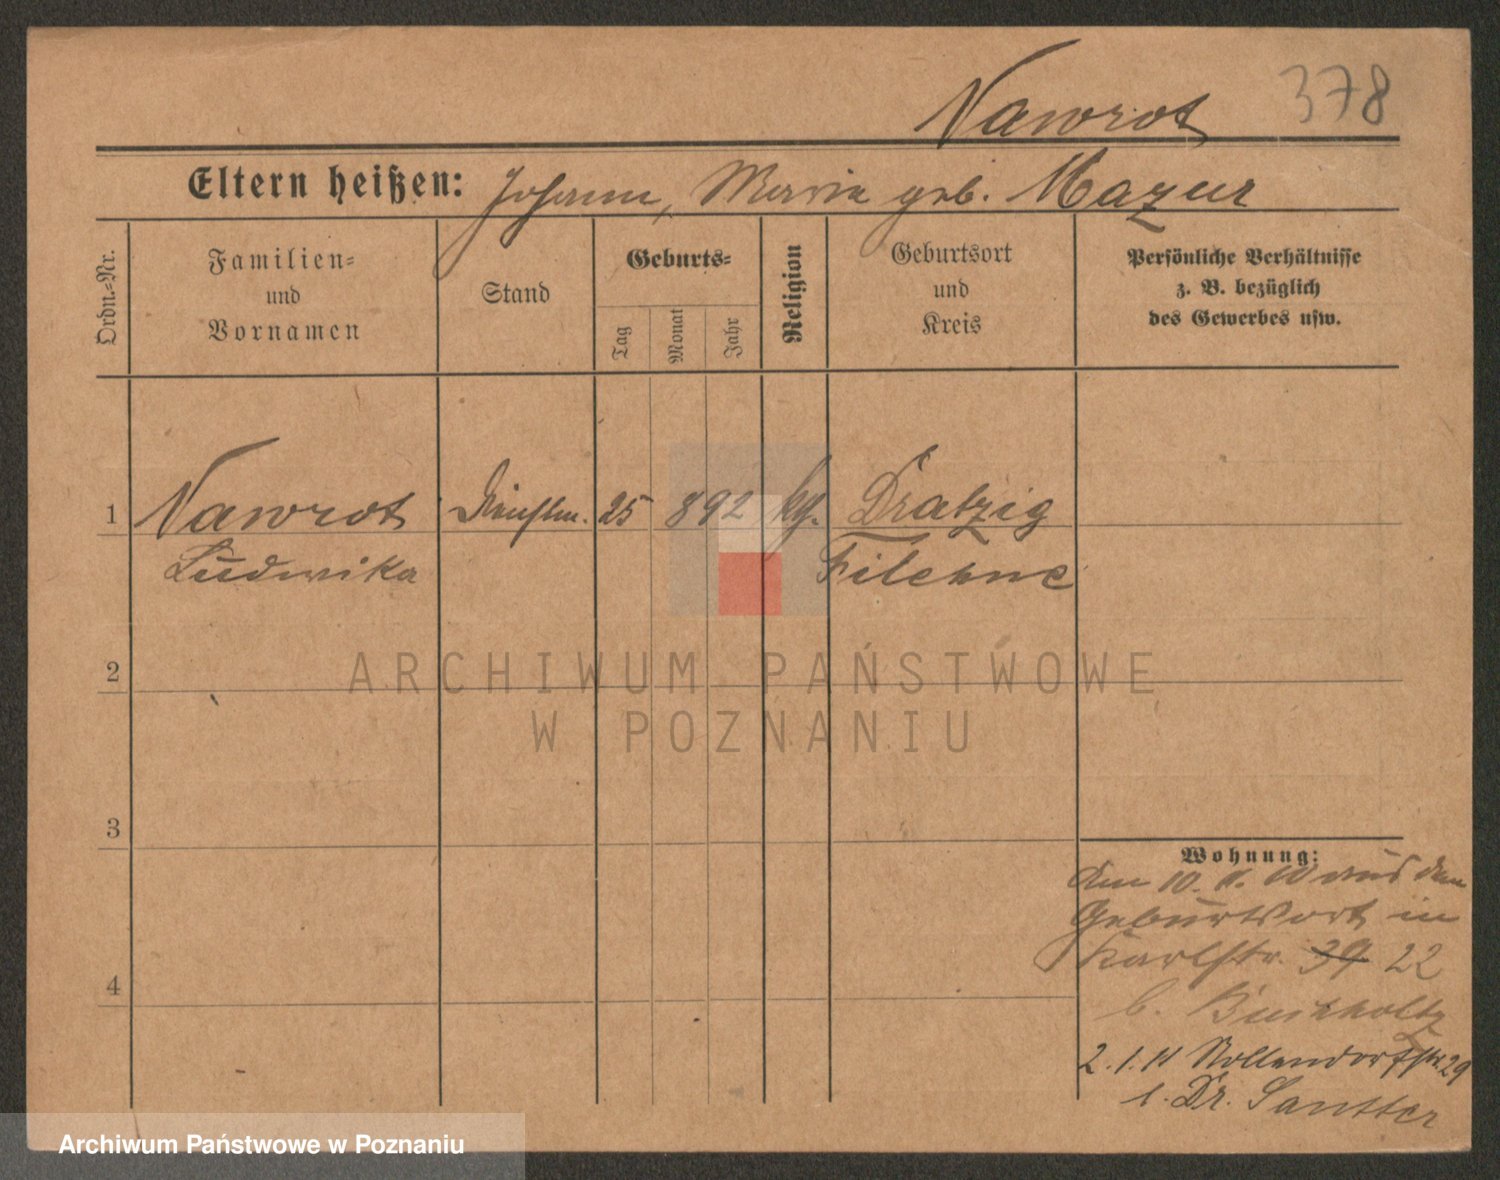 Nawrot 378
Eltern heißen: Johann, Maria geb. Mazur
Ordn.-Nr.
Familien-
und
Vornamen
Stand
Geburts-
Tag
Monat
Jahr
Religion
Geburtsort
und
Kreis
Persönliche Verhältnisse
z. B. bezüglich
des Gewerbes usw.
1 Nawrot Dienstm. 25 8 92 kg. Dratzig
Ludwika Filehne
2
3
4
Wohnung:
Am 10. aus dem
Geburtsort in
Karlstr. 39 22
b. Buchholtz
2.1.11 Nollendorfstr. 29
b. Dr.
ARCHIWUM PAŃSTWOWE
W POZNANIU
Archiwum Państwowe w Poznaniu